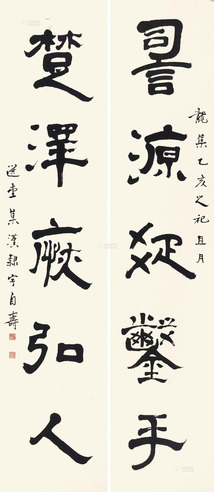 龍集乙亥之祀且月
䛐源疏鑿手
楚澤弘人
選堂集漢隸字自壽